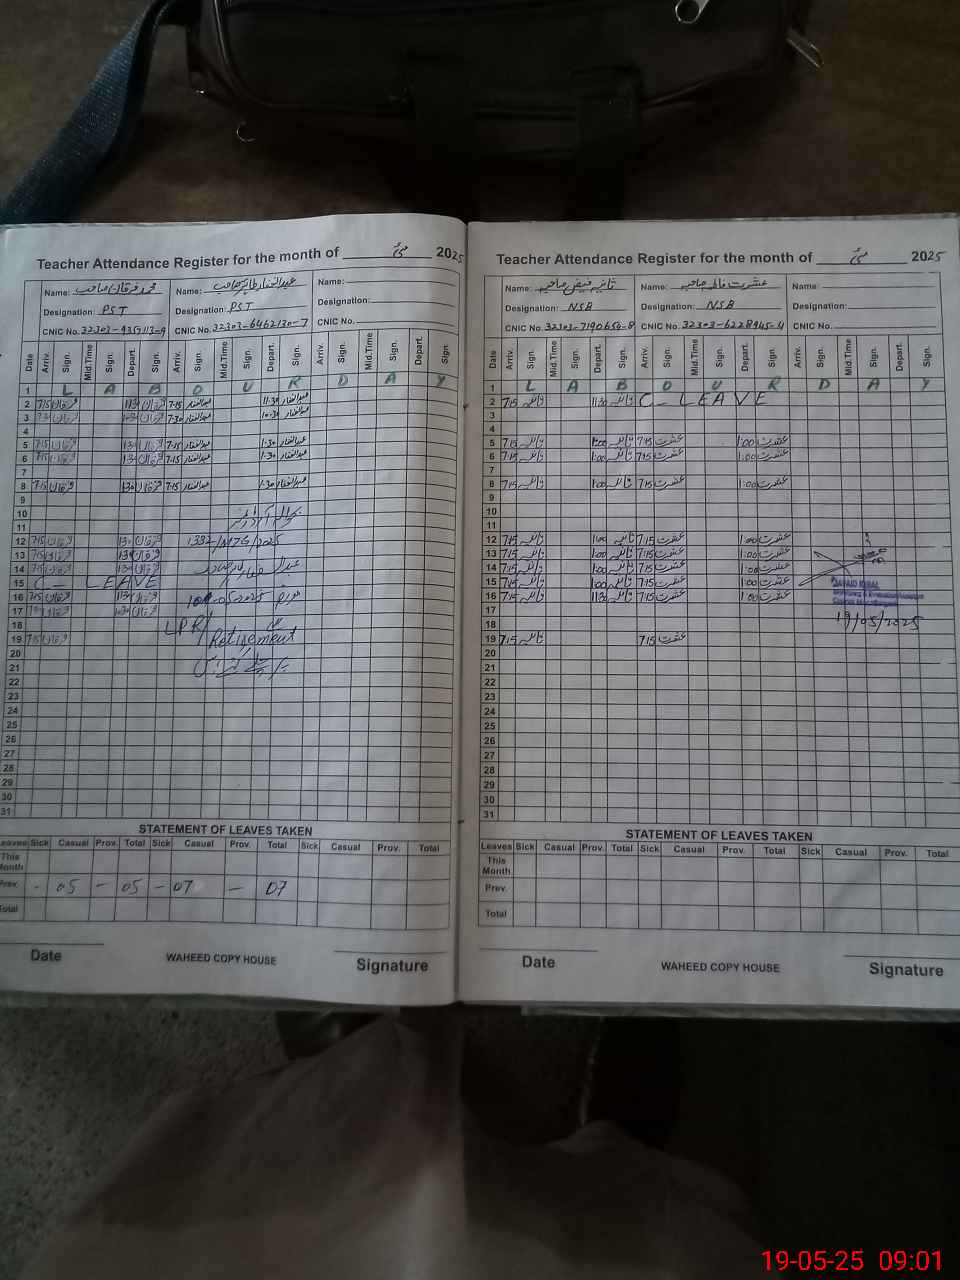 Teacher Attendance Register for the month of مئی 2025
Name: محمد فرقان صاحب Name: عبدالغفار طاہر صاحب Name:
Designation: PST Designation: PST Designation:
CNIC No. CNIC No. 32303-6462130-7 CNIC No.
Date Arriv. Sign. Mid.Time Sign. Depart. Sign. Arriv. Sign. Mid.Time Sign. Depart. Sign. Arriv. Sign. Mid.Time Sign. Depart. Sign.
1 L A B O U R D A Y
2 7:15 فرقان 11:30 فرقان 7:15 عبدالغفار 11:30 عبدالغفار
3 7:30 فرقان 10:30 فرقان 7:30 عبدالغفار 10:30 عبدالغفار
4
5 7:15 فرقان 1:30 فرقان 7:15 عبدالغفار 1:30 عبدالغفار
6 7:15 فرقان 1:30 فرقان 7:15 عبدالغفار 1:30 عبدالغفار
7
8 7:15 فرقان 1:30 فرقان 7:15 عبدالغفار 1:30 عبدالغفار
9
10 بحوالہ آرڈر نمبر
11
12 7:15 فرقان 1:30 فرقان 1392/MZG/2025
13 7:15 فرقان 1:30 فرقان
14 7:15 فرقان 1:30 فرقان
15 C- LEAVE
16 7:15 فرقان 11:30 فرقان
17 7:15 فرقان 10:30 فرقان
18 LPR/
19 7:15 فرقان Retirement
20
21
22
23
24
25
26
27
28
29
30
31
STATEMENT OF LEAVES TAKEN
Leaves Sick Casual Prov. Total Sick Casual Prov. Total Sick Casual Prov. Total
This Month
Prev. - 05 - 05 - 07 - 07
Total
Date WAHEED COPY HOUSE Signature
Teacher Attendance Register for the month of مئی 2025
Name: ثانیہ فیض صاحبہ Name: عشرت فاطمہ صاحبہ Name:
Designation: NSB Designation: NSB Designation:
CNIC No. 32303-7190654-8 CNIC No. 32303-6228945-4 CNIC No.
Date Arriv. Sign. Mid.Time Sign. Depart. Sign. Arriv. Sign. Mid.Time Sign. Depart. Sign. Arriv. Sign. Mid.Time Sign. Depart. Sign.
1 L A B O U R D A Y
2 7:15 ثانیہ 11:30 ثانیہ C- LEAVE
3
4
5 7:15 ثانیہ 1:00 ثانیہ 7:15 عشرت 1:00 عشرت
6 7:15 ثانیہ 1:00 ثانیہ 7:15 عشرت 1:00 عشرت
7
8 7:15 ثانیہ 1:00 ثانیہ 7:15 عشرت 1:00 عشرت
9
10
11
12 7:15 ثانیہ 1:00 ثانیہ 7:15 عشرت 1:00 عشرت
13 7:15 ثانیہ 1:00 ثانیہ 7:15 عشرت 1:00 عشرت
14 7:15 ثانیہ 1:00 ثانیہ 7:15 عشرت 1:00 عشرت
15 7:15 ثانیہ 1:00 ثانیہ 7:15 عشرت 1:00 عشرت
16 7:15 ثانیہ 11:30 ثانیہ 7:15 عشرت 1:00 عشرت
JAVAID IQBAL
Monitoring & Evaluation Assistant
17
18 19/05/2025
19 7:15 ثانیہ 7:15 عشرت
20
21
22
23
24
25
26
27
28
29
30
31
STATEMENT OF LEAVES TAKEN
Leaves Sick Casual Prov. Total Sick Casual Prov. Total Sick Casual Prov. Total
This Month
Prev.
Total
Date WAHEED COPY HOUSE Signature
19-05-25 09:01